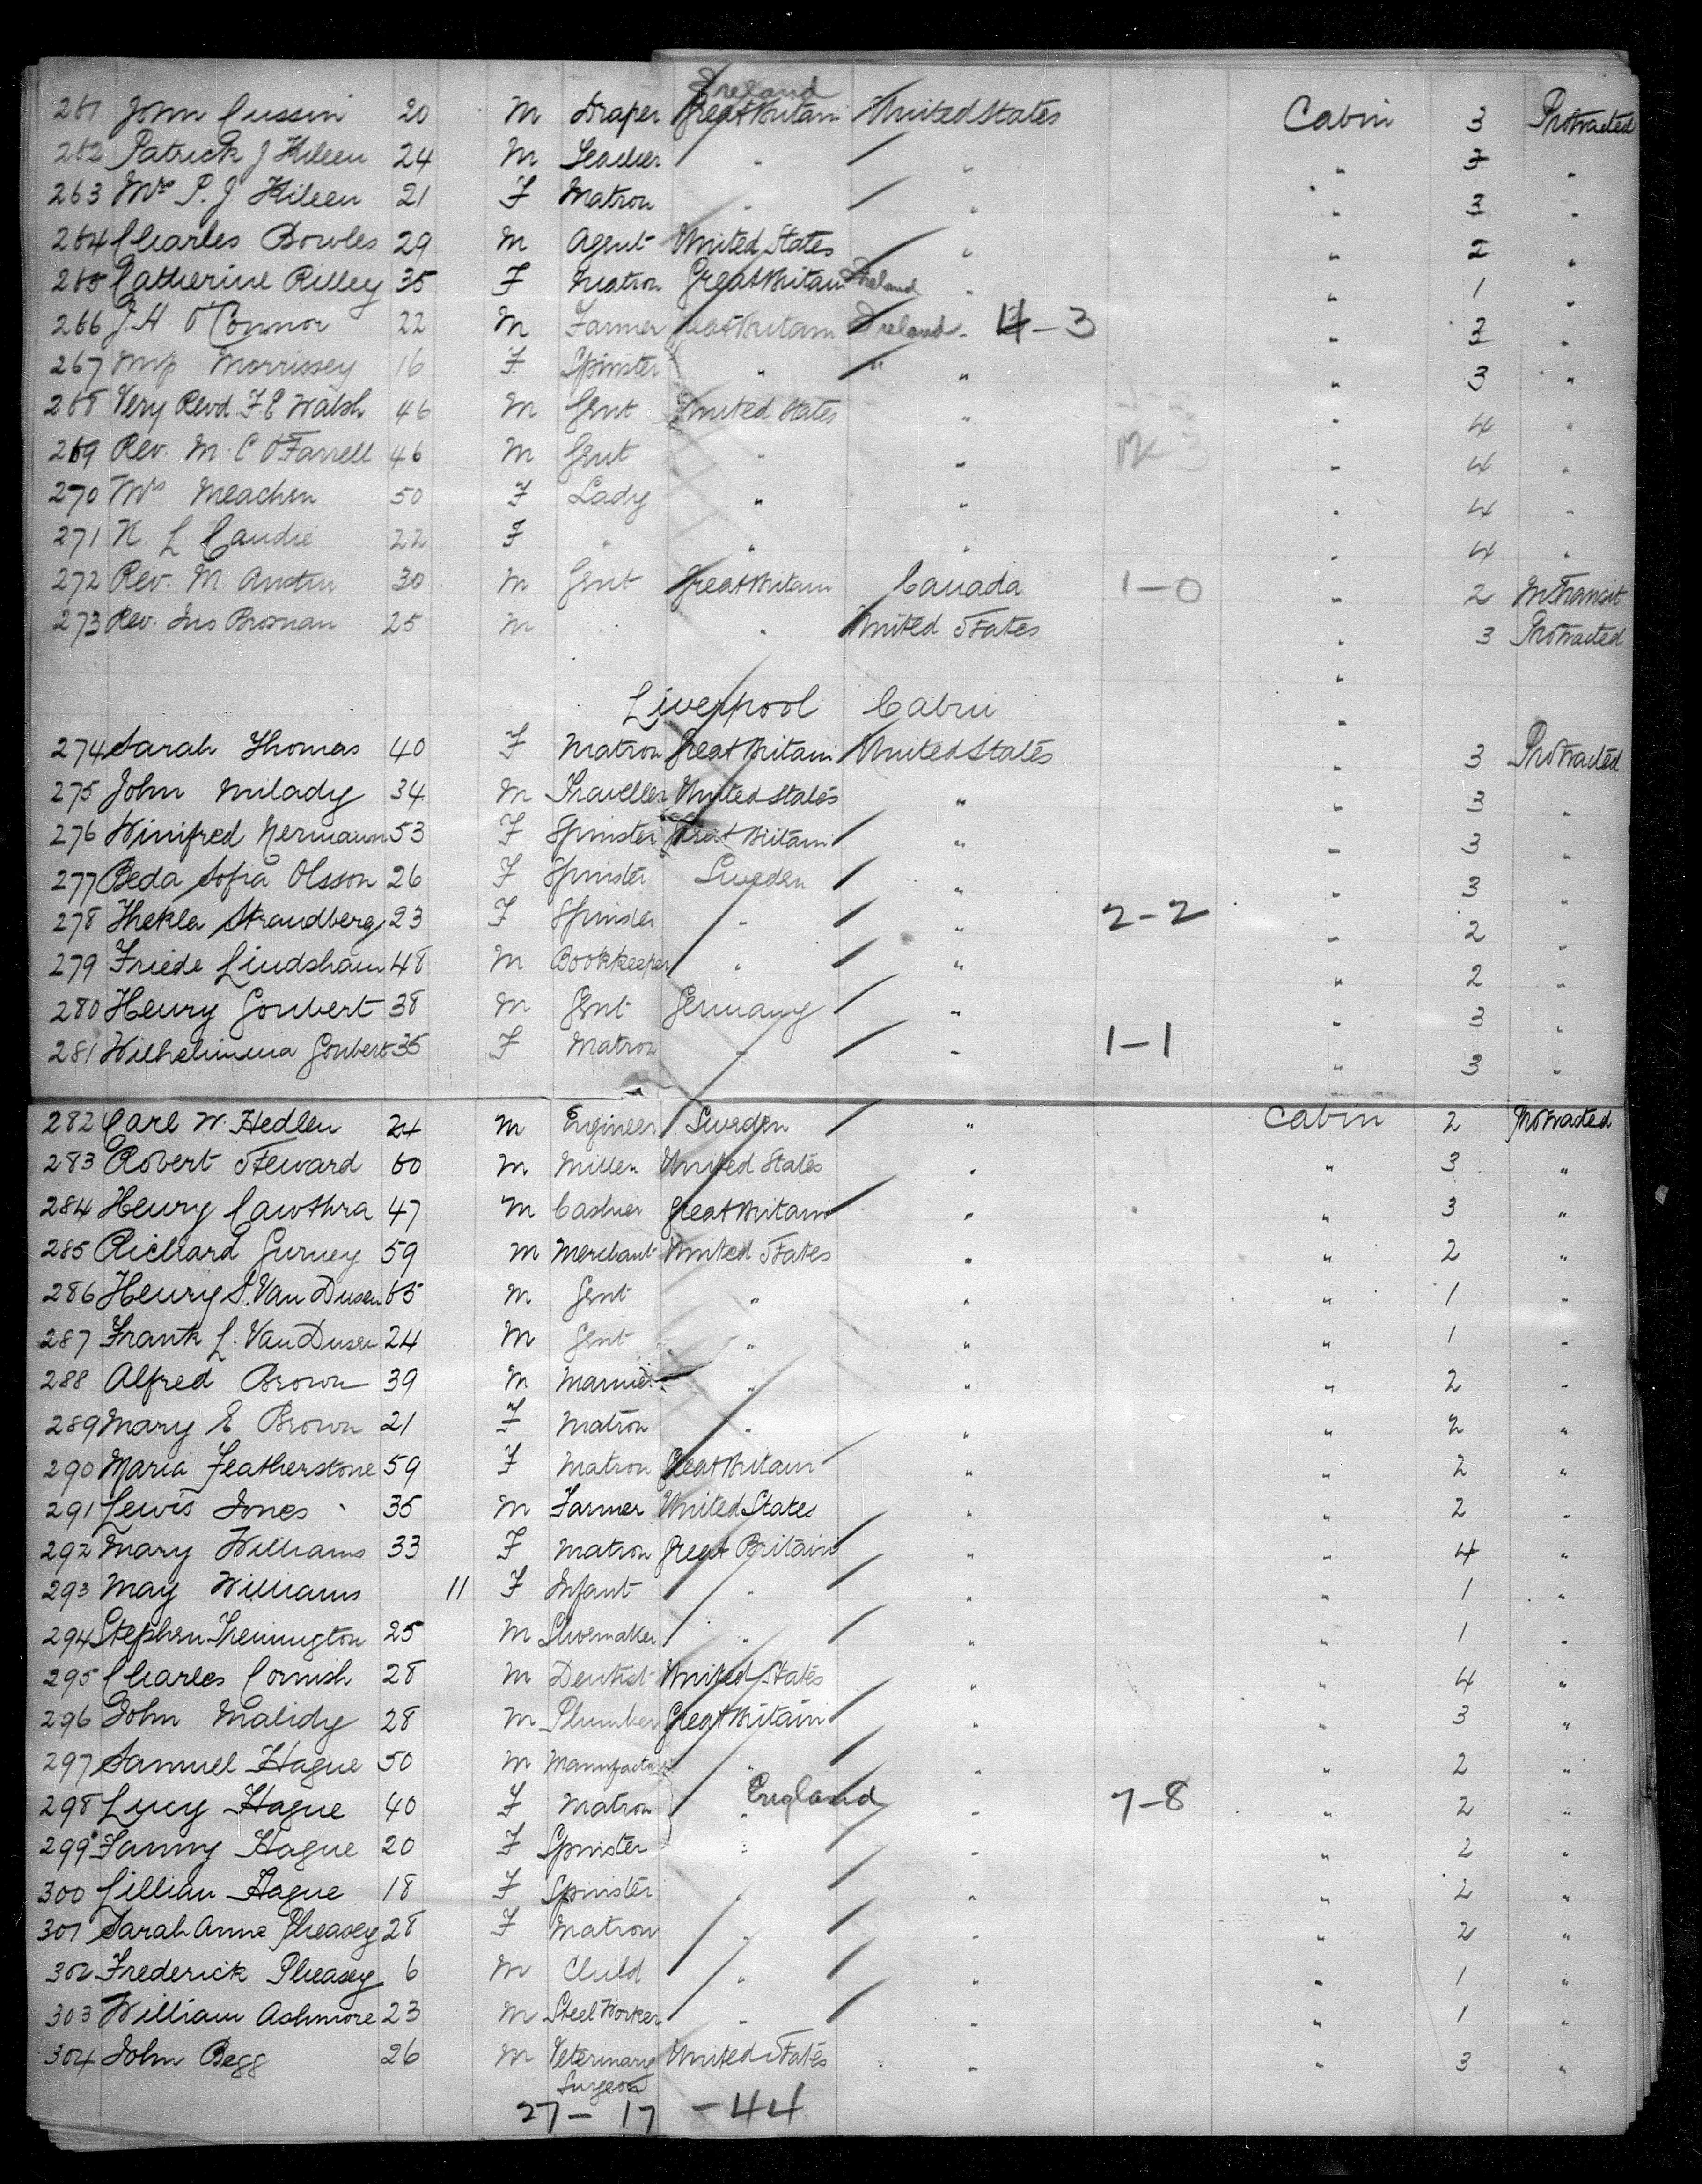 Ireland
261 John Cussin 20 M Draper Great Britain United States Cabin 3 Protracted
262 Patrick J Kileen 24 M Teacher " " " 3 "
263 Mrs P. J Kileen 21 F Matron " " " 3 "
264 Charles Bowles 29 M Agent United States " " 2 "
265 Catherine Rilley 35 F Matron Great Britain Ireland " " 1 "
266 J. H. O'Connor 22 M Farmer Great Britain Ireland - 3 " 3 "
267 Miss Morrissey 16 F Spinster " " " " 3 "
268 Very Revd F. E Walsh 46 M Gent United States " " 4 "
269 Rev. M. C O'Farrell 46 M Gent " " " 4 "
270 Mrs Meachen 50 F Lady " " " 4 "
271 N. L Caudie 22 F " " " " 4 "
272 Rev. M. Austin 30 M Gent Great Britain Canada 1-0 " 2 In Transit
273 Rev. Jno Brosnan 25 M " United States " 3 Protracted
Liverpool Cabin
274 Sarah Thomas 40 F Matron Great Britain United States " 3 Protracted
275 John Milady 34 M Traveller United States " " 3 "
276 Winifred Hermann 53 F Spinster Great Britain " " 3 "
277 Beda Sofia Olsson 26 F Spinster Sweden " " 3 "
278 Thekla Strandberg 23 F Spinster " " 2-2 " 2 "
279 Friede 48 M Bookkeeper " " " 2 "
280 Henry Goubert 38 M Gent Germany " " 3 "
281 Wilhelmina Goubert 35 F Matron " " 1-1 " 3 "
282 Carl W. Hedlen 24 M Engineer Sweden " Cabin 2 Protracted
283 Robert Steward 60 M Miller United States " " 3 "
284 Henry Cawthra 47 M Cashier Great Britain " " 3 "
285 Richard Gurney 59 M Merchant United States " " 2 "
286 Henry S. Van Dusen 65 M Gent " " " 1 "
287 Frank L. Van Dusen 24 M Gent " " " 1 "
288 Alfred Brown 39 M " " " 2 "
289 Mary E Brown 21 F Matron " " " 2 "
290 Maria Featherstone 59 F Matron Great Britain " " 2 "
291 Lewis Jones 35 M Farmer United States " " 2 "
292 Mary Williams 33 F Matron Great Britain " " 4 "
293 May Williams 11 F Infant " " " 1 "
294 Stephen 25 M Shoemaker " " " 1 "
295 Charles Cornish 28 M Dentist United States " " 4 "
296 John Malidy 28 M Plumber Great Britain " " 3 "
297 Samuel Hague 50 M Manufacturer " " " 2 "
298 Lucy Hague 40 F Matron " England " 7-8 " 2 "
299 Fanny Hague 20 F Spinster " " " 2 "
300 Lillian Hague 18 F Spinster " " " 2 "
301 Sarah Anne Pheasey 28 F Matron " " " 2 "
302 Frederick Pheasey 6 M Child " " " 1 "
303 William Ashmore 23 M Steel Worker " " " 1 "
304 John Begg 26 M Veterinary United States " " 3 "
Surgeon
27 - 17 - 44